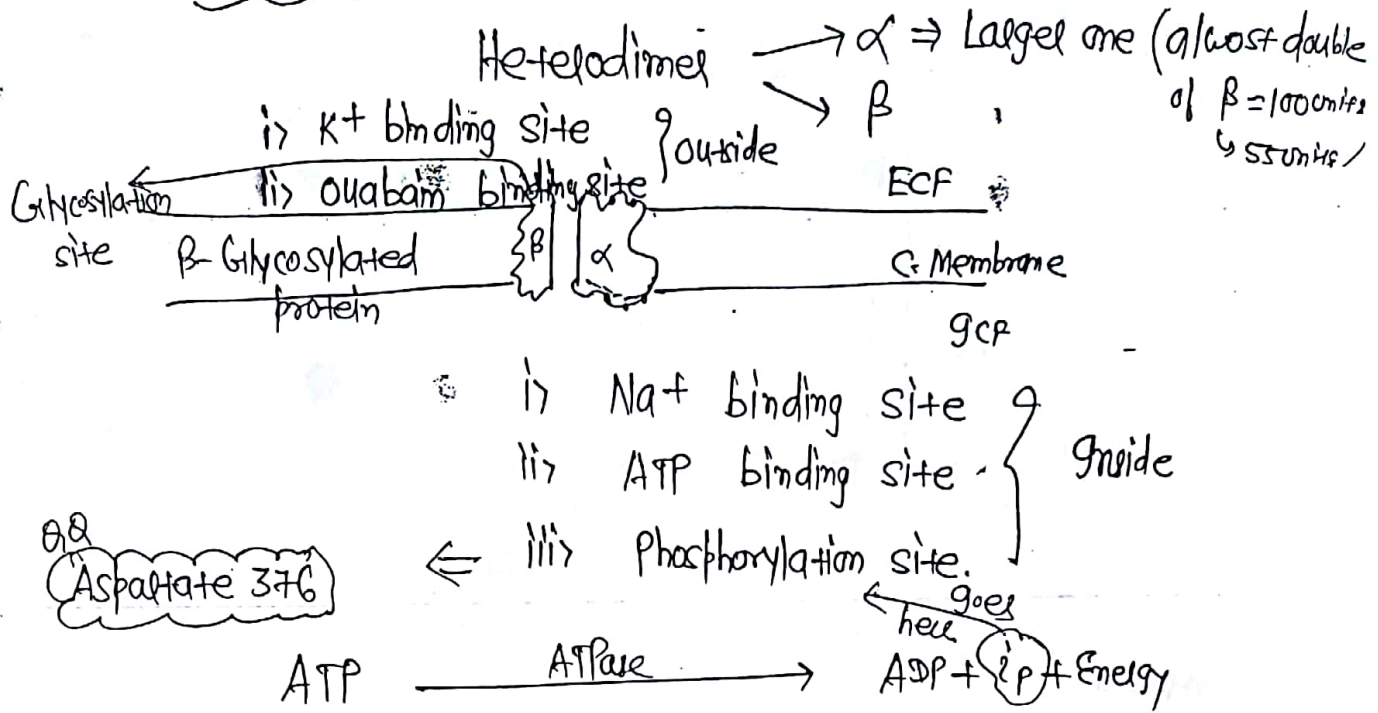 Heterodimer → α ⇒ Larger one (almost double
→ β of β = 100 units
↳ 55 units)
i> K+ binding site } outside
ii> ouabain binding site
Glycosylation
site
ECF
β-Glycosylated
protein
β
α
C. Membrane
ICF
i> Na+ binding site
ii> ATP binding site
iii> Phosphorylation site.
} Inside
QQ
Aspartate 376 ⇐
goes
here
ATP ATPase → ADP + iP + Energy